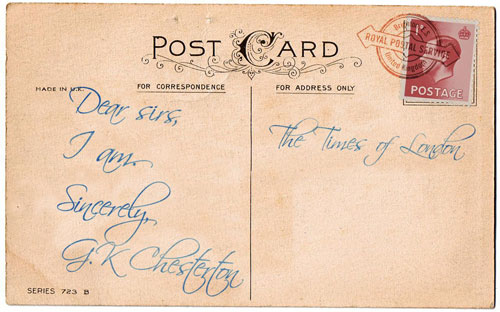 POST CARD
Bermuda U.K.
ROYAL POSTAL SERVICE
United Kingdom
POSTAGE
MADE IN U.K.
FOR CORRESPONDENCE
FOR ADDRESS ONLY
Dear sirs,
I am.
Sincerely,
G.K Chesterton
The Times of London
SERIES 723 B